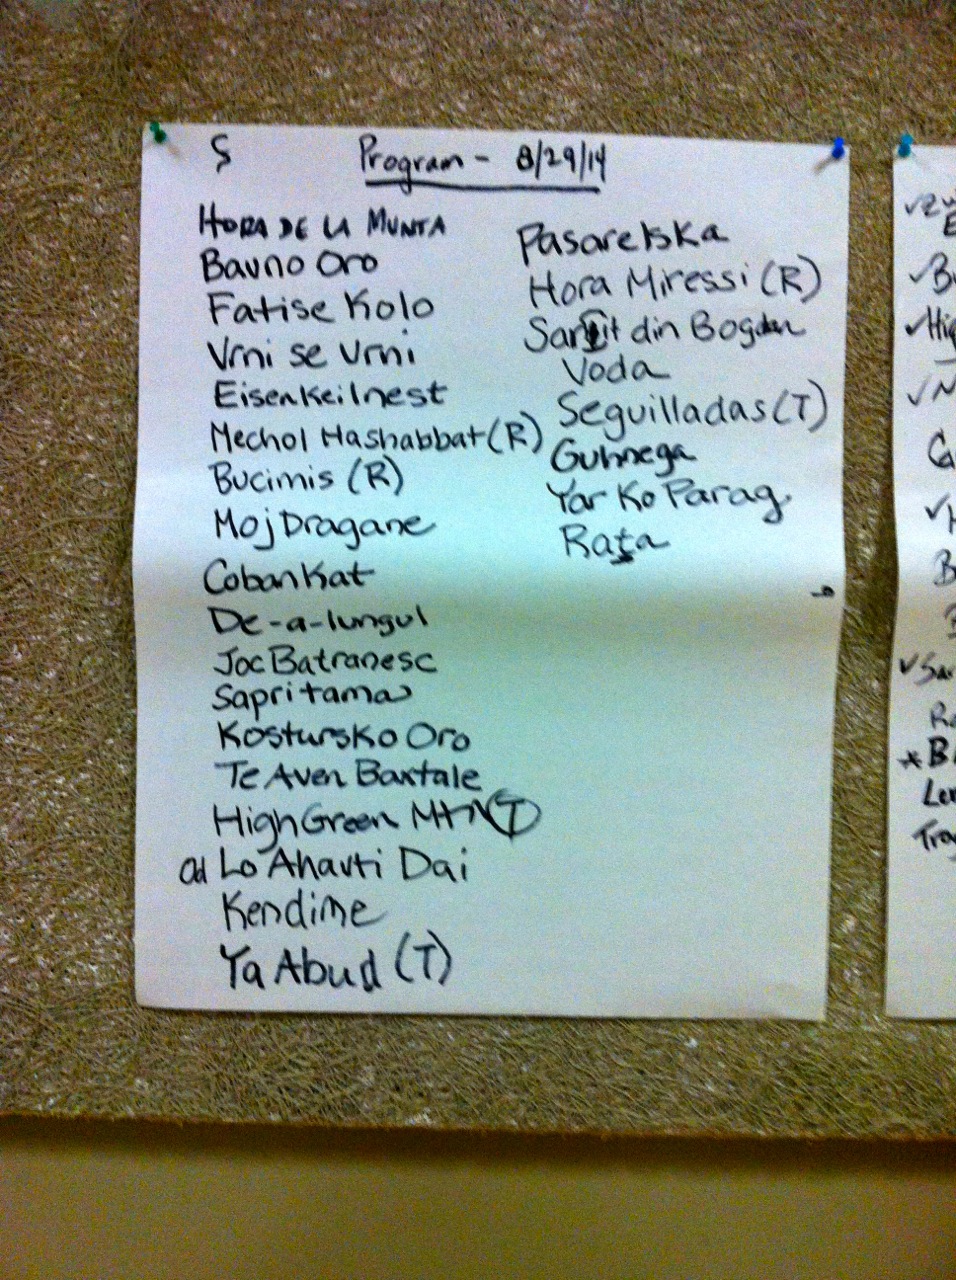 Ş Program - 8/29/14
HORA DE LA MUNTA
Bavno Oro
Fatise Kolo
Vrni se Vrni
Eisenkeilnest
Mechol Hashabbat (R)
Bucimis (R)
Moj Dragane
Coban Kat
De-a-lungul
Joc Batranesc
Sapri tama
Kostursko Oro
Te Aven Baxtale
High Green Mtn (T)
ad Lo Ahavti Dai
Kendime
Ya Abud (T)
Pasarelska
Hora Miressi (R)
din Bogdan
Voda
Seguilladas (T)
Yar Ko Parag
Raţa